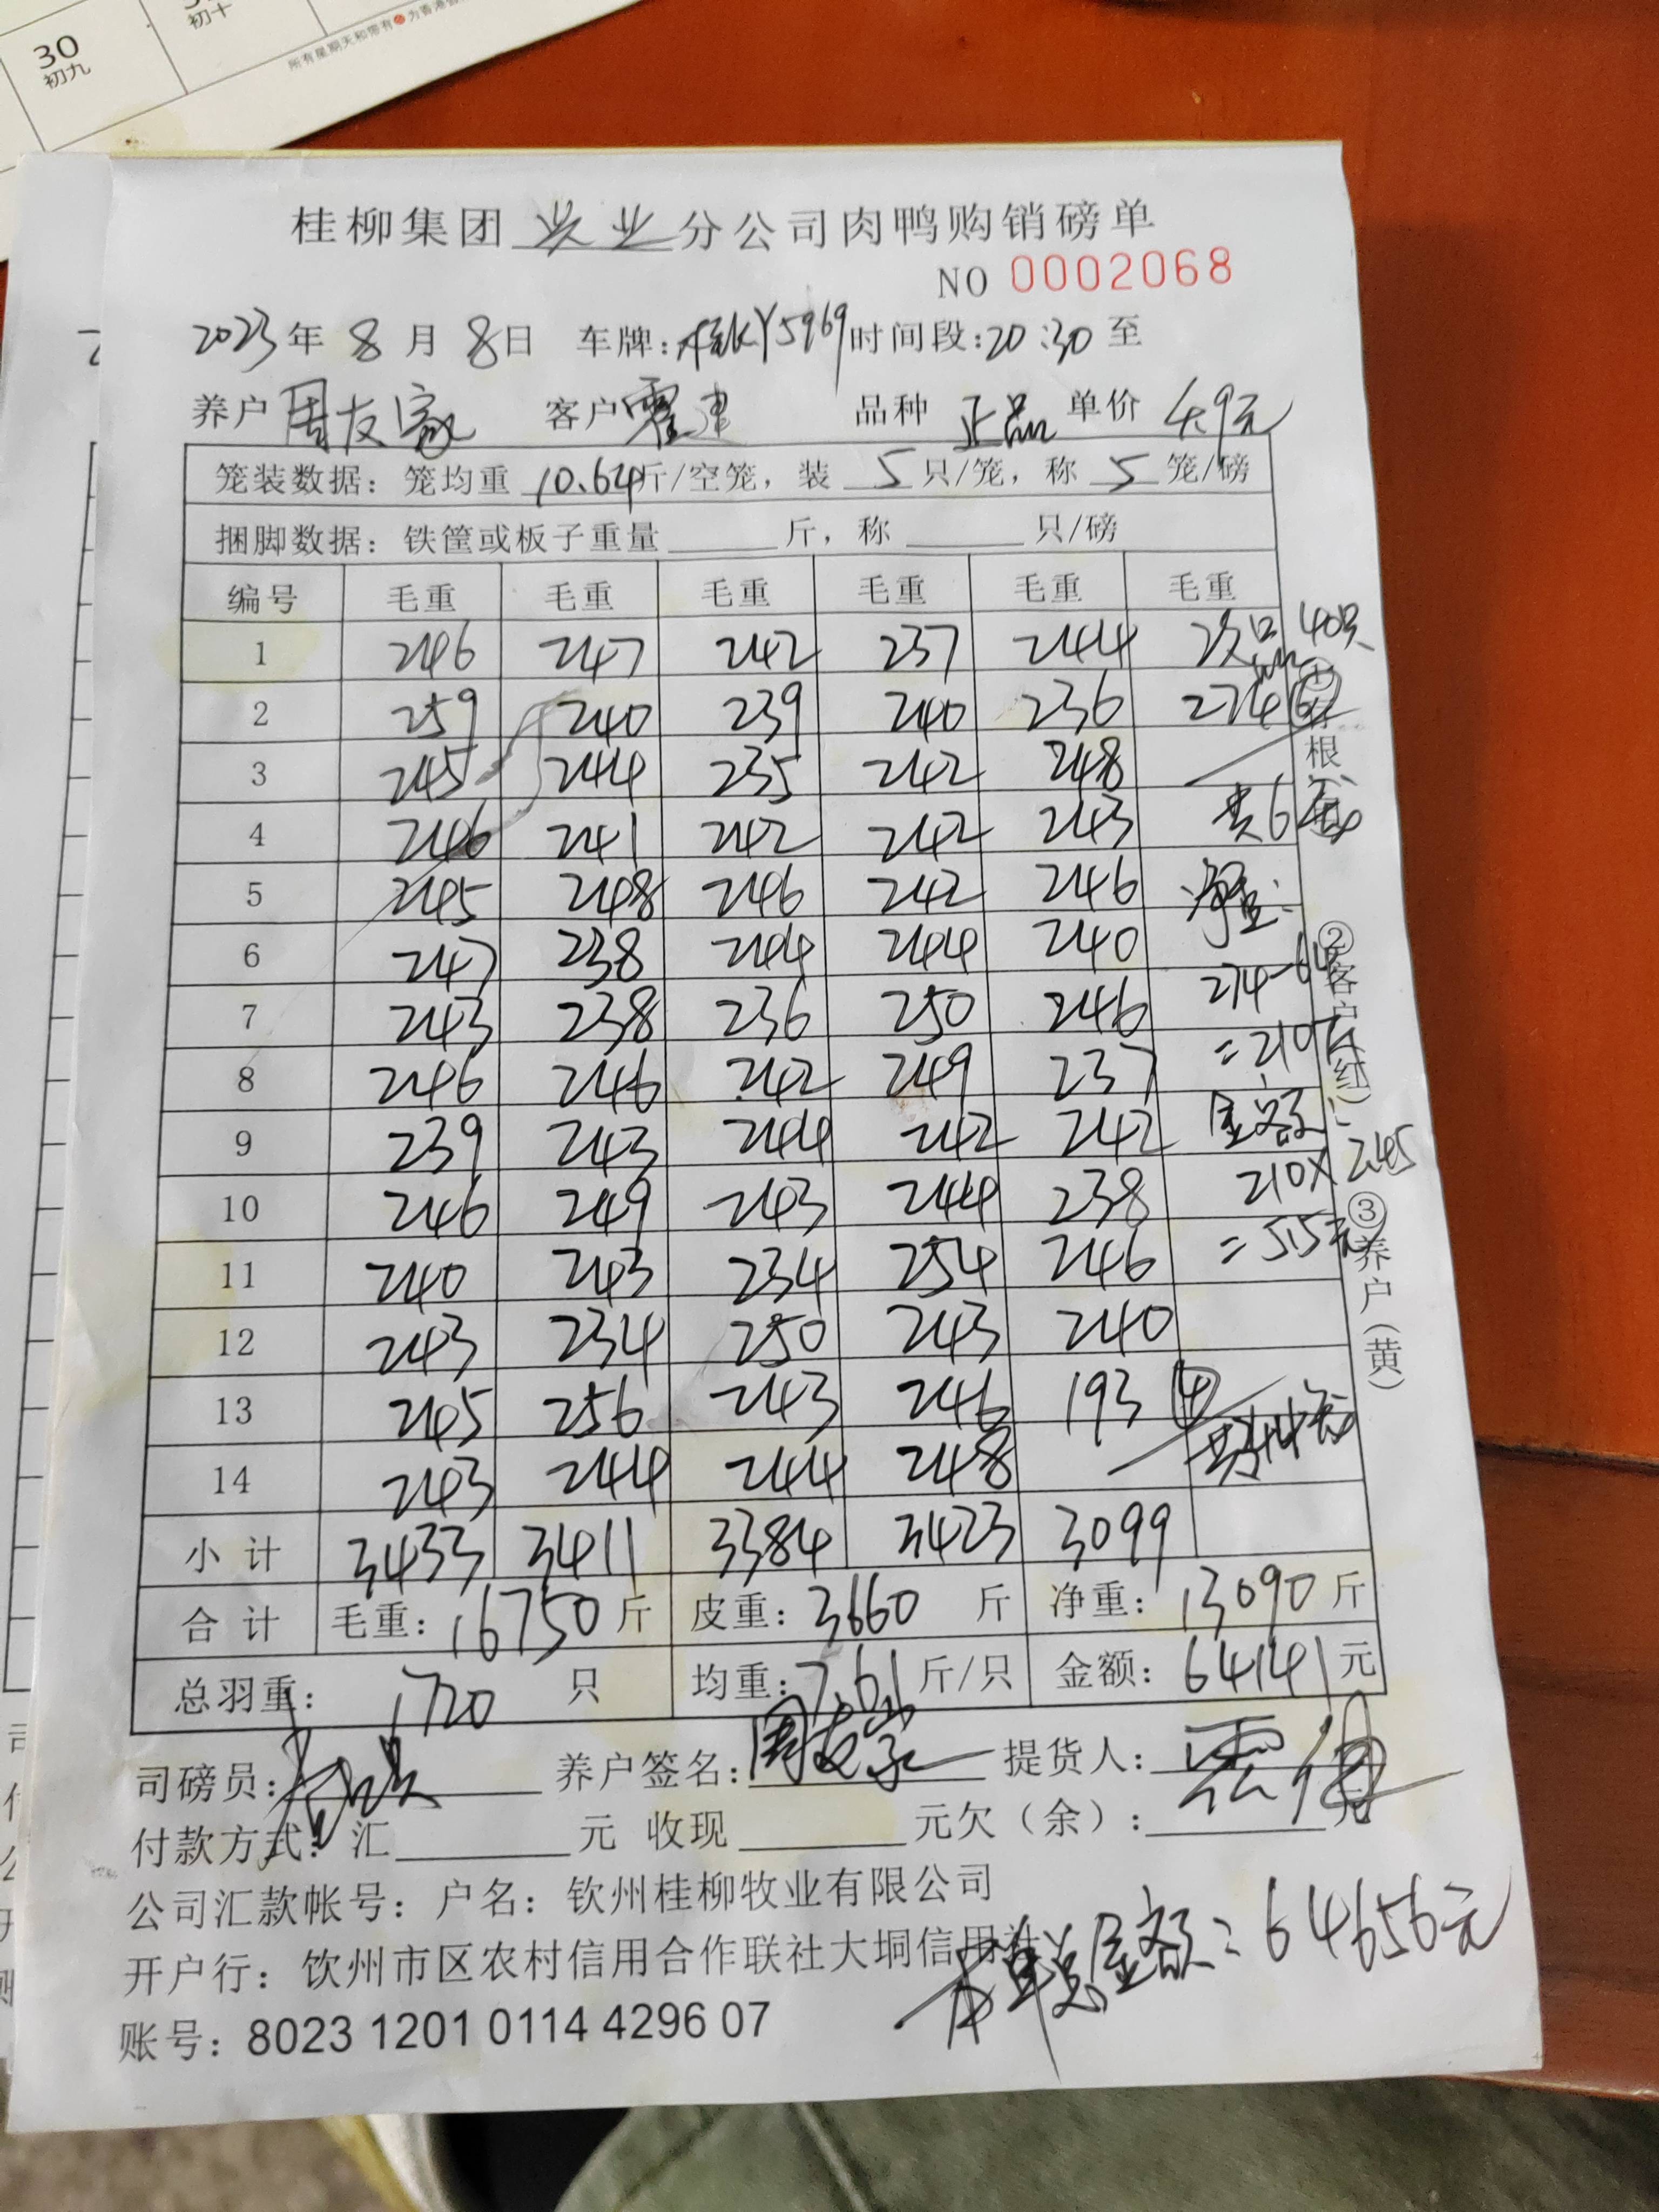 30
初九
初十
所有星期天和带有
为香港
桂柳集团 业 分公司肉鸭购销磅单
NO 0002068
2023年 8月 8日 车牌:桂KY5969 时间段:20:30至
养户 周友家 客户 霍 品种 正品 单价 4.9元
笼装数据：笼均重 10.64斤/空笼，装 5 只/笼，称 5 笼/磅
捆脚数据：铁筐或板子重量 斤，称 只/磅
编号 毛重 毛重 毛重 毛重 毛重 毛重
1 246 247 242 237 244 次品 40只
2 259 240 239 240 236 274 ⑥
3 245 244 235 242 248
4 246 241 242 242 243 共6笼
5 245 248 246 242 246 净重：
6 247 238 244 244 240 274-64
7 243 238 236 250 246 =210斤
8 246 246 242 249 237
9 239 243 244 242 242 金额：
10 246 249 243 244 238 210×2.45
11 240 243 234 254 246 =515元
12 243 234 250 243 240
13 245 256 243 246 193 ④
14 243 244 244 248 共344笼
小计 3433 3411 3384 3423 3099
合计 毛重：16750斤 皮重：3660 斤 净重：13090斤
总羽重： 1720 只 均重：7.61斤/只 金额：64141元
司磅员： 养户签名：周友家 提货人：
付款方式：汇 元 收现 元欠（余）： 元
公司汇款帐号：户名：钦州桂柳牧业有限公司
开户行：钦州市区农村信用合作联社大垌信用社
本单总金额：64656元
账号：8023 1201 0114 4296 07
①存根
②客户（红）
③养户（黄）